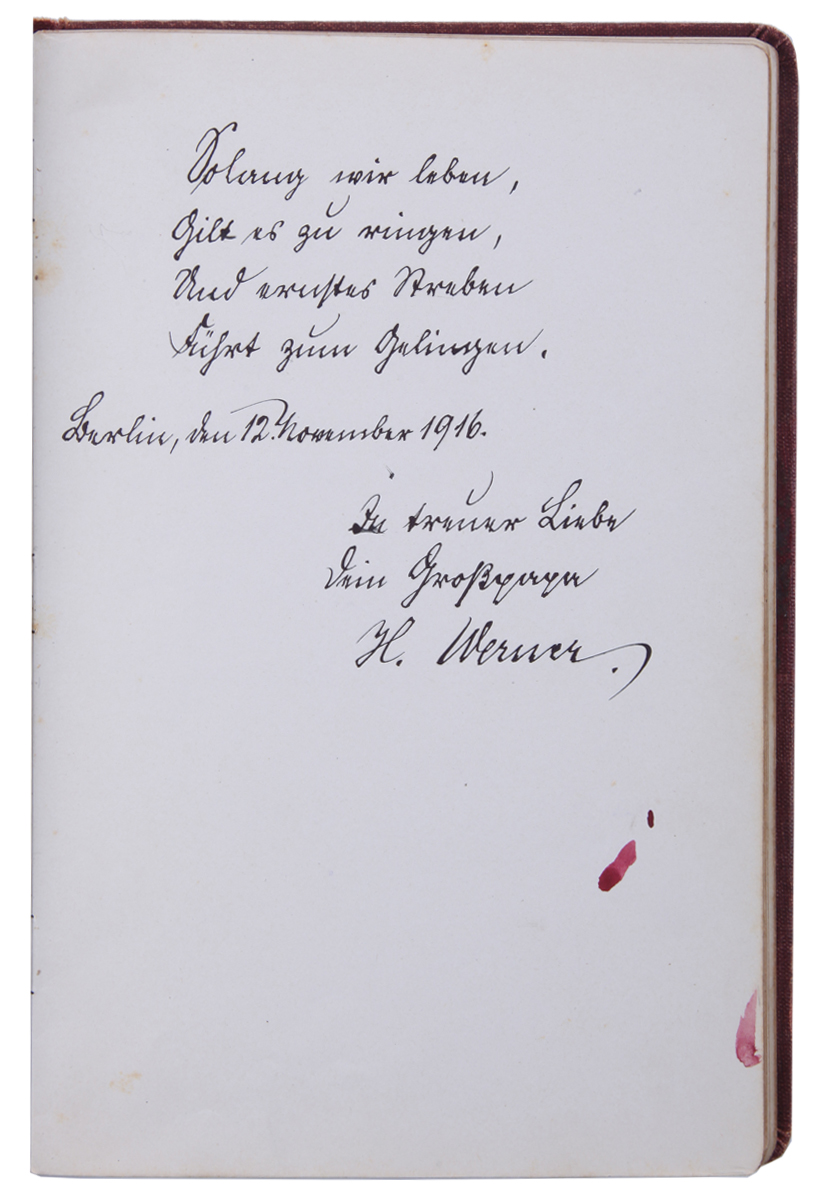 Solang wir leben,
Gilt es zu ringen,
Und ernstes Streben
Führt zum Gelingen.
Berlin, den 12. November 1916.
In treuer Liebe
Dein Großpapa
H. Werner.